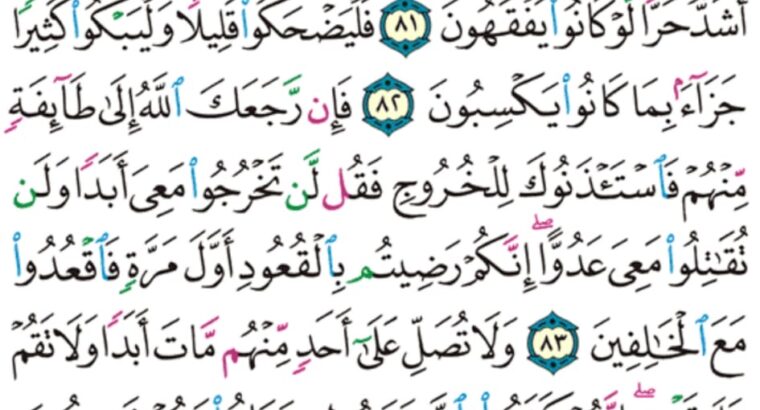 أَشَدُّ حَرًّا لَّوْ كَانُوا۟ يَفْقَهُونَ ٨١ فَلْيَضْحَكُوا۟ قَلِيلًا وَلْيَبْكُوا۟ كَثِيرًا
جَزَآءًۢ بِمَا كَانُوا۟ يَكْسِبُونَ ٨٢ فَإِن رَّجَعَكَ ٱللَّهُ إِلَىٰ طَآئِفَةٍ
مِّنْهُمْ فَٱسْتَـْٔذَنُوكَ لِلْخُرُوجِ فَقُل لَّن تَخْرُجُوا۟ مَعِىَ أَبَدًا وَلَن
تُقَـٰتِلُوا۟ مَعِىَ عَدُوًّا ۖ إِنَّكُمْ رَضِيتُم بِٱلْقُعُودِ أَوَّلَ مَرَّةٍ فَٱقْعُدُوا۟
مَعَ ٱلْخَـٰلِفِينَ ٨٣ وَلَا تُصَلِّ عَلَىٰٓ أَحَدٍ مِّنْهُم مَّاتَ أَبَدًا وَلَا تَقُمْ